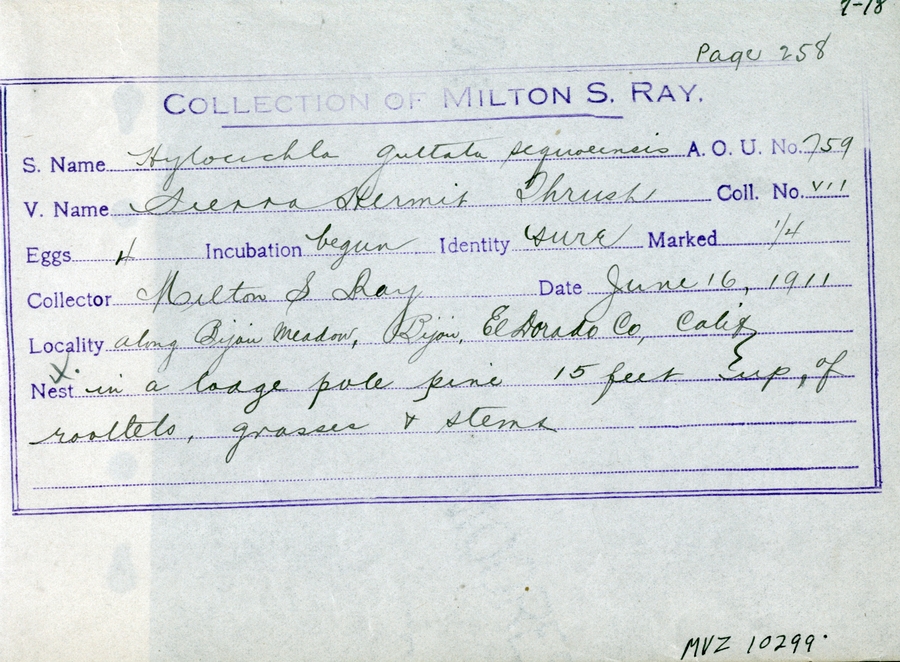 7-18
Page 258
COLLECTION OF MILTON S. RAY.
S. Name Hylocichla guttata sequoiensis A. O. U. No. 759
V. Name Sierra Hermit Thrush Coll. No. VII
Eggs 4 Incubation begun Identity sure Marked 1/4
Collector Milton S Ray Date June 16, 1911
Locality along Bijou Meadow, Bijou, El Dorado Co, Calif
Nest in a lodge pole pine 15 feet up, of
rootlets, grasses & stems
MVZ 10299.